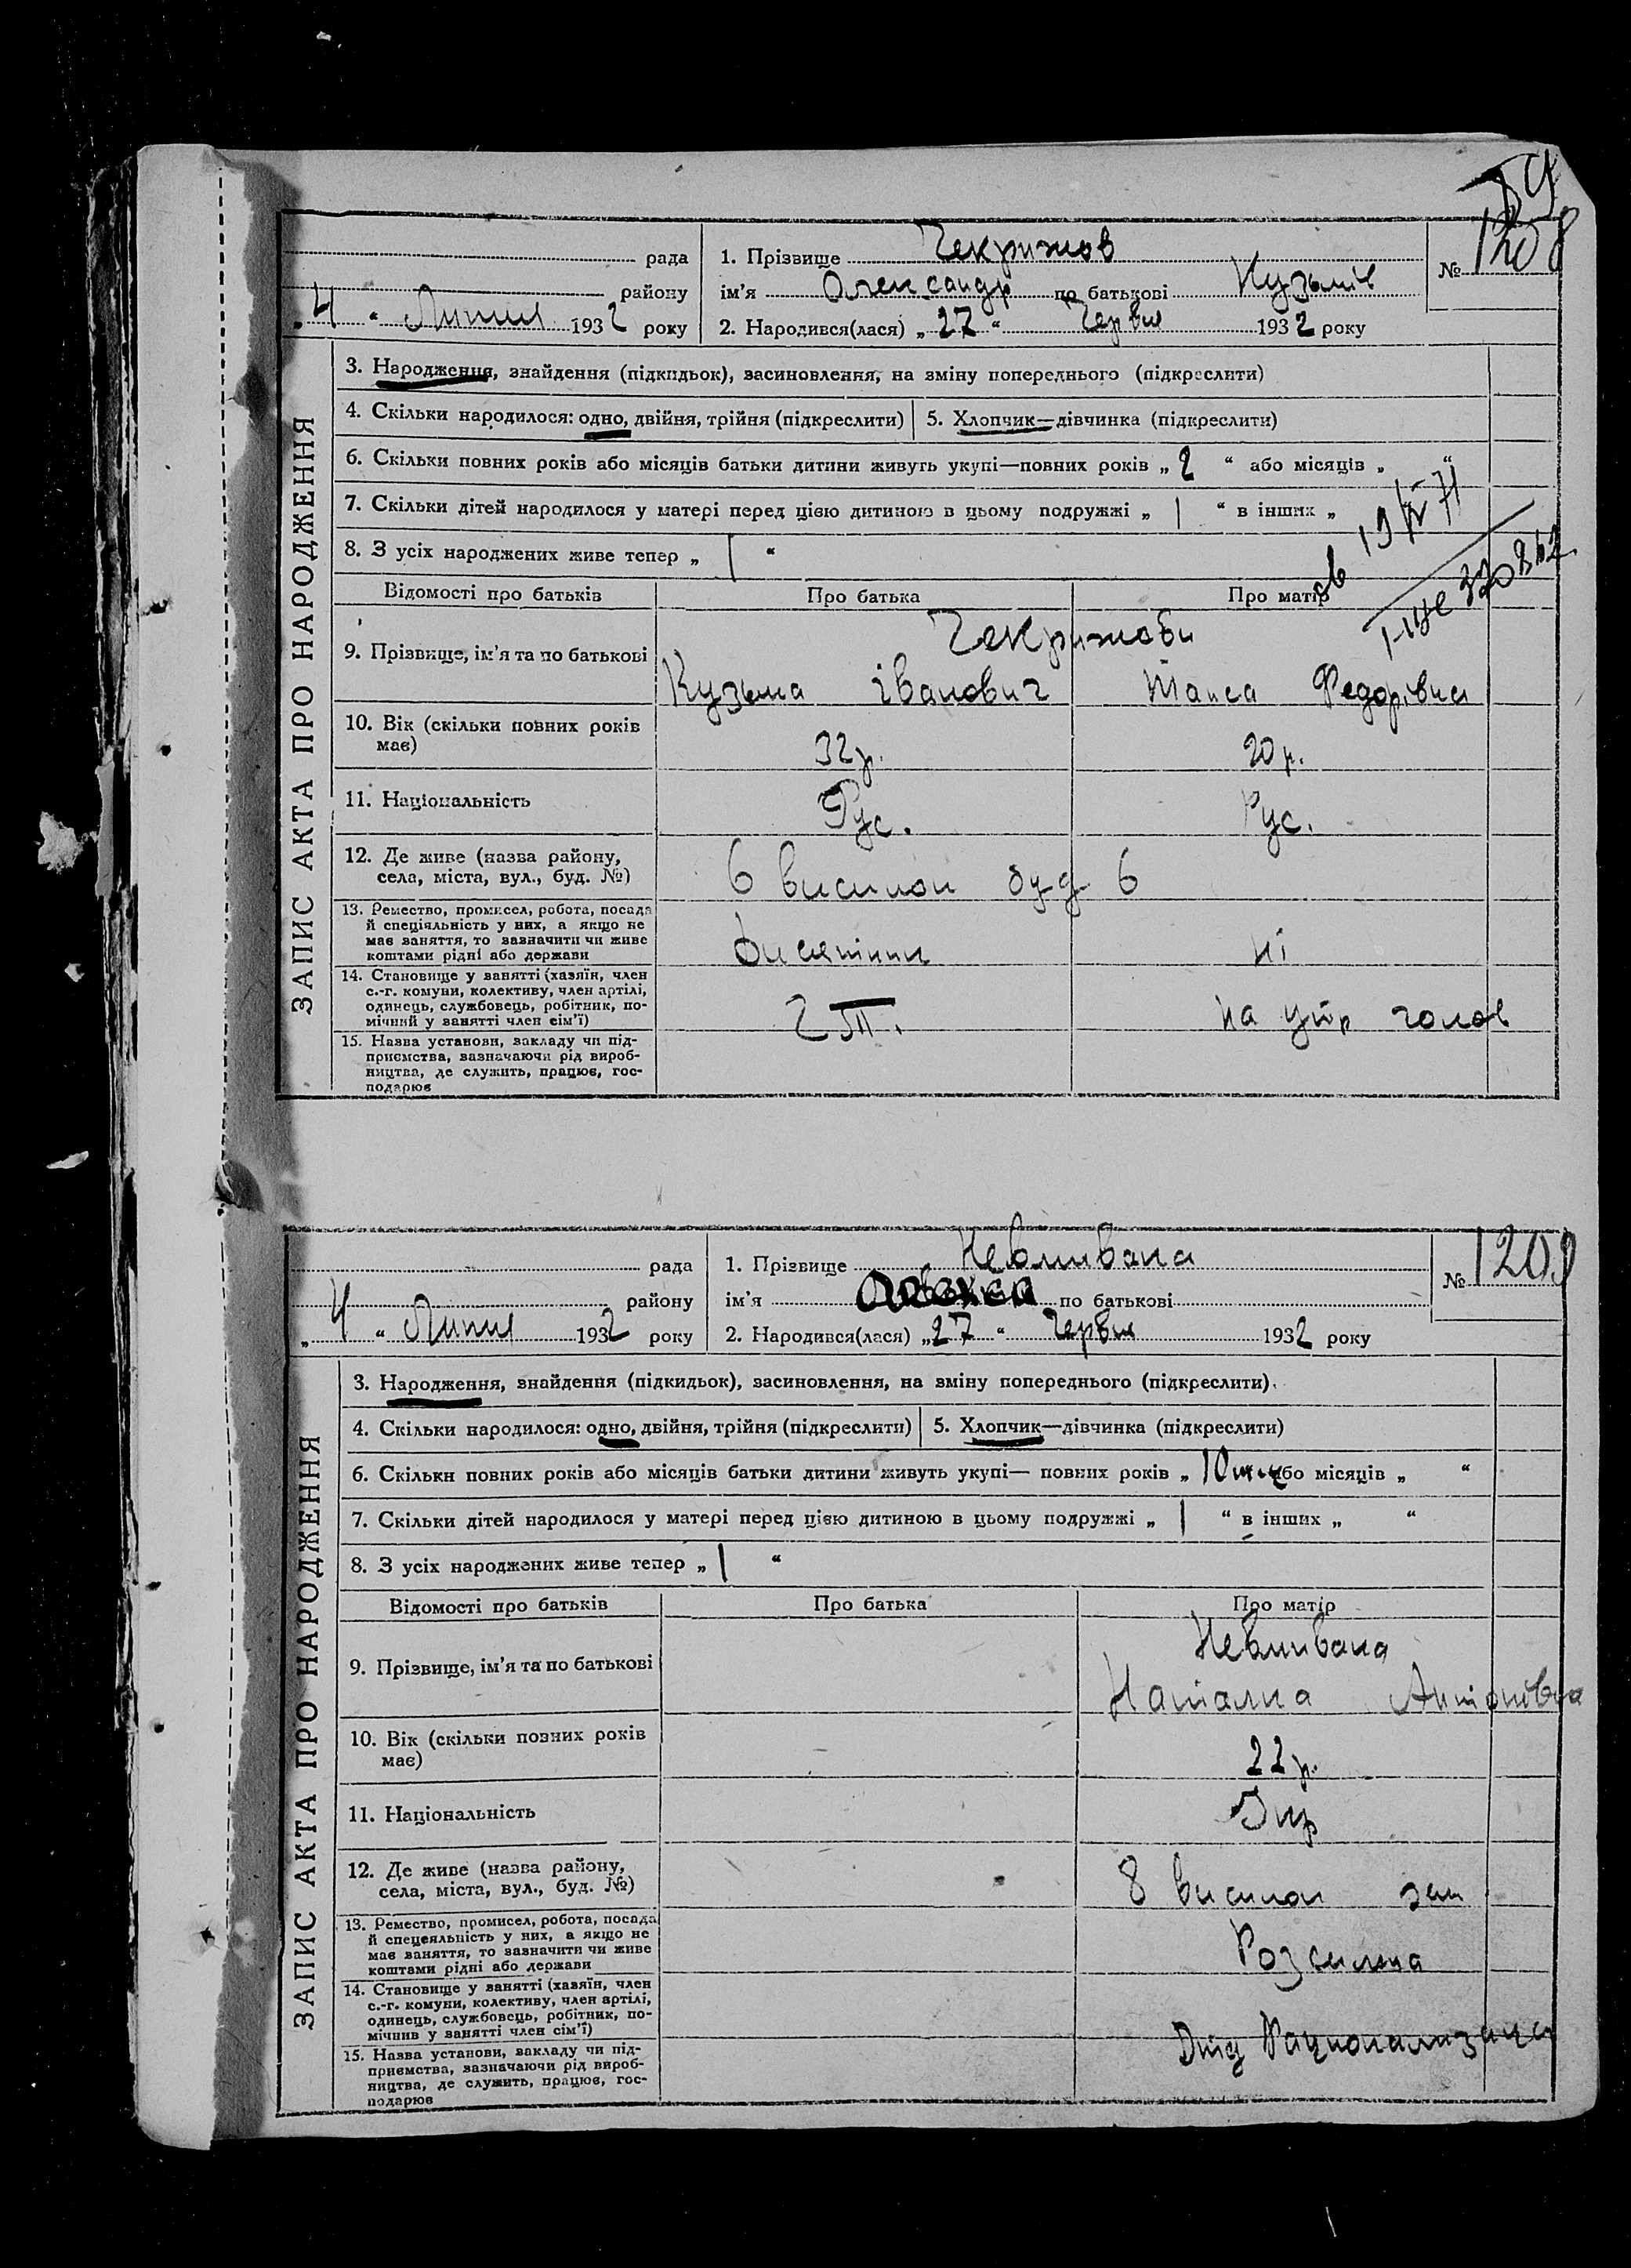 1208
рада 1. Прізвище Чекрижов №
району ім’я Олександр по батькові Кузьмів
„ 4 “ Липня 1932 року 2. Народився(лася) „ 27 “ Червня 1932 року
ЗАПИС АКТА ПРО НАРОДЖЕННЯ
3. Народження, знайдення (підкидьок), засиновлення, на зміну попереднього (підкреслити)
4. Скільки народилося: одно, двійня, трійня (підкреслити) 5. Хлопчик—дівчинка (підкреслити)
6. Скільки повних років або місяців батьки дитини живуть укупі—повних років „ 2 “ або місяців „ “
7. Скільки дітей народилося у матері перед цією дитиною в цьому подружжі „ 1 “ в інших „
8. З усіх народжених живе тепер „ 1 “
19/IV 71
320862
Відомості про батьків Про батька Про матір
Чекрижови
9. Прізвище, ім’я та по батькові Кузьма Іванович Таиса Федорівна
10. Вік (скільки повних років має) 32 р. 20 р.
11. Національність Рус. Рус.
12. Де живе (назва району, села, міста, вул., буд. №) 6 виселок буд 6
13. Ремество, промисел, робота, посада й спеціяльність у них, а якщо не має заняття, то зазначити чи живе коштами рідні або держави ні
14. Становище у занятті (хазяїн, член с.-г. комуни, колективу, член артілі, одинець, службовець, робітник, помічний у занятті член сім’ї) на утр голов
15. Назва установи, закладу чи підприємства, зазначаючи рід виробництва, де служить, працює, господарює
рада 1. Прізвище Невливана № 1209
району ім’я по батькові
„ 4 “ Липня 1932 року 2. Народився(лася) „ 27 “ Червня 1932 року
ЗАПИС АКТА ПРО НАРОДЖЕННЯ
3. Народження, знайдення (підкидьок), засиновлення, на зміну попереднього (підкреслити).
4. Скільки народилося: одно, двійня, трійня (підкреслити) 5. Хлопчик—дівчинка (підкреслити)
6. Скільки повних років або місяців батьки дитини живуть укупі— повних років „ 10 або місяців „ “
7. Скільки дітей народилося у матері перед цією дитиною в цьому подружжі „ 1 “ в інших „ “
8. З усіх народжених живе тепер „ 1 “
Відомості про батьків Про батька Про матір
Невливана
9. Прізвище, ім’я та по батькові Наталка Антонівна
10. Вік (скільки повних років має) 22 р.
11. Національність Укр
12. Де живе (назва району, села, міста, вул., буд. №) 8 виселок
13. Ремество, промисел, робота, посада й спецеяльність у них, а якщо не має заняття, то зазначити чи живе коштами рідні або держави Розсилна
14. Становище у занятті (хазяїн, член с.-г. комуни, колективу, член артілі, одинець, службовець, робітник, помічнив у занятті член сім’ї)
15. Назва установи, закладу чи підприємства, зазначаючи рід виробництва, де служить, працює, господарює